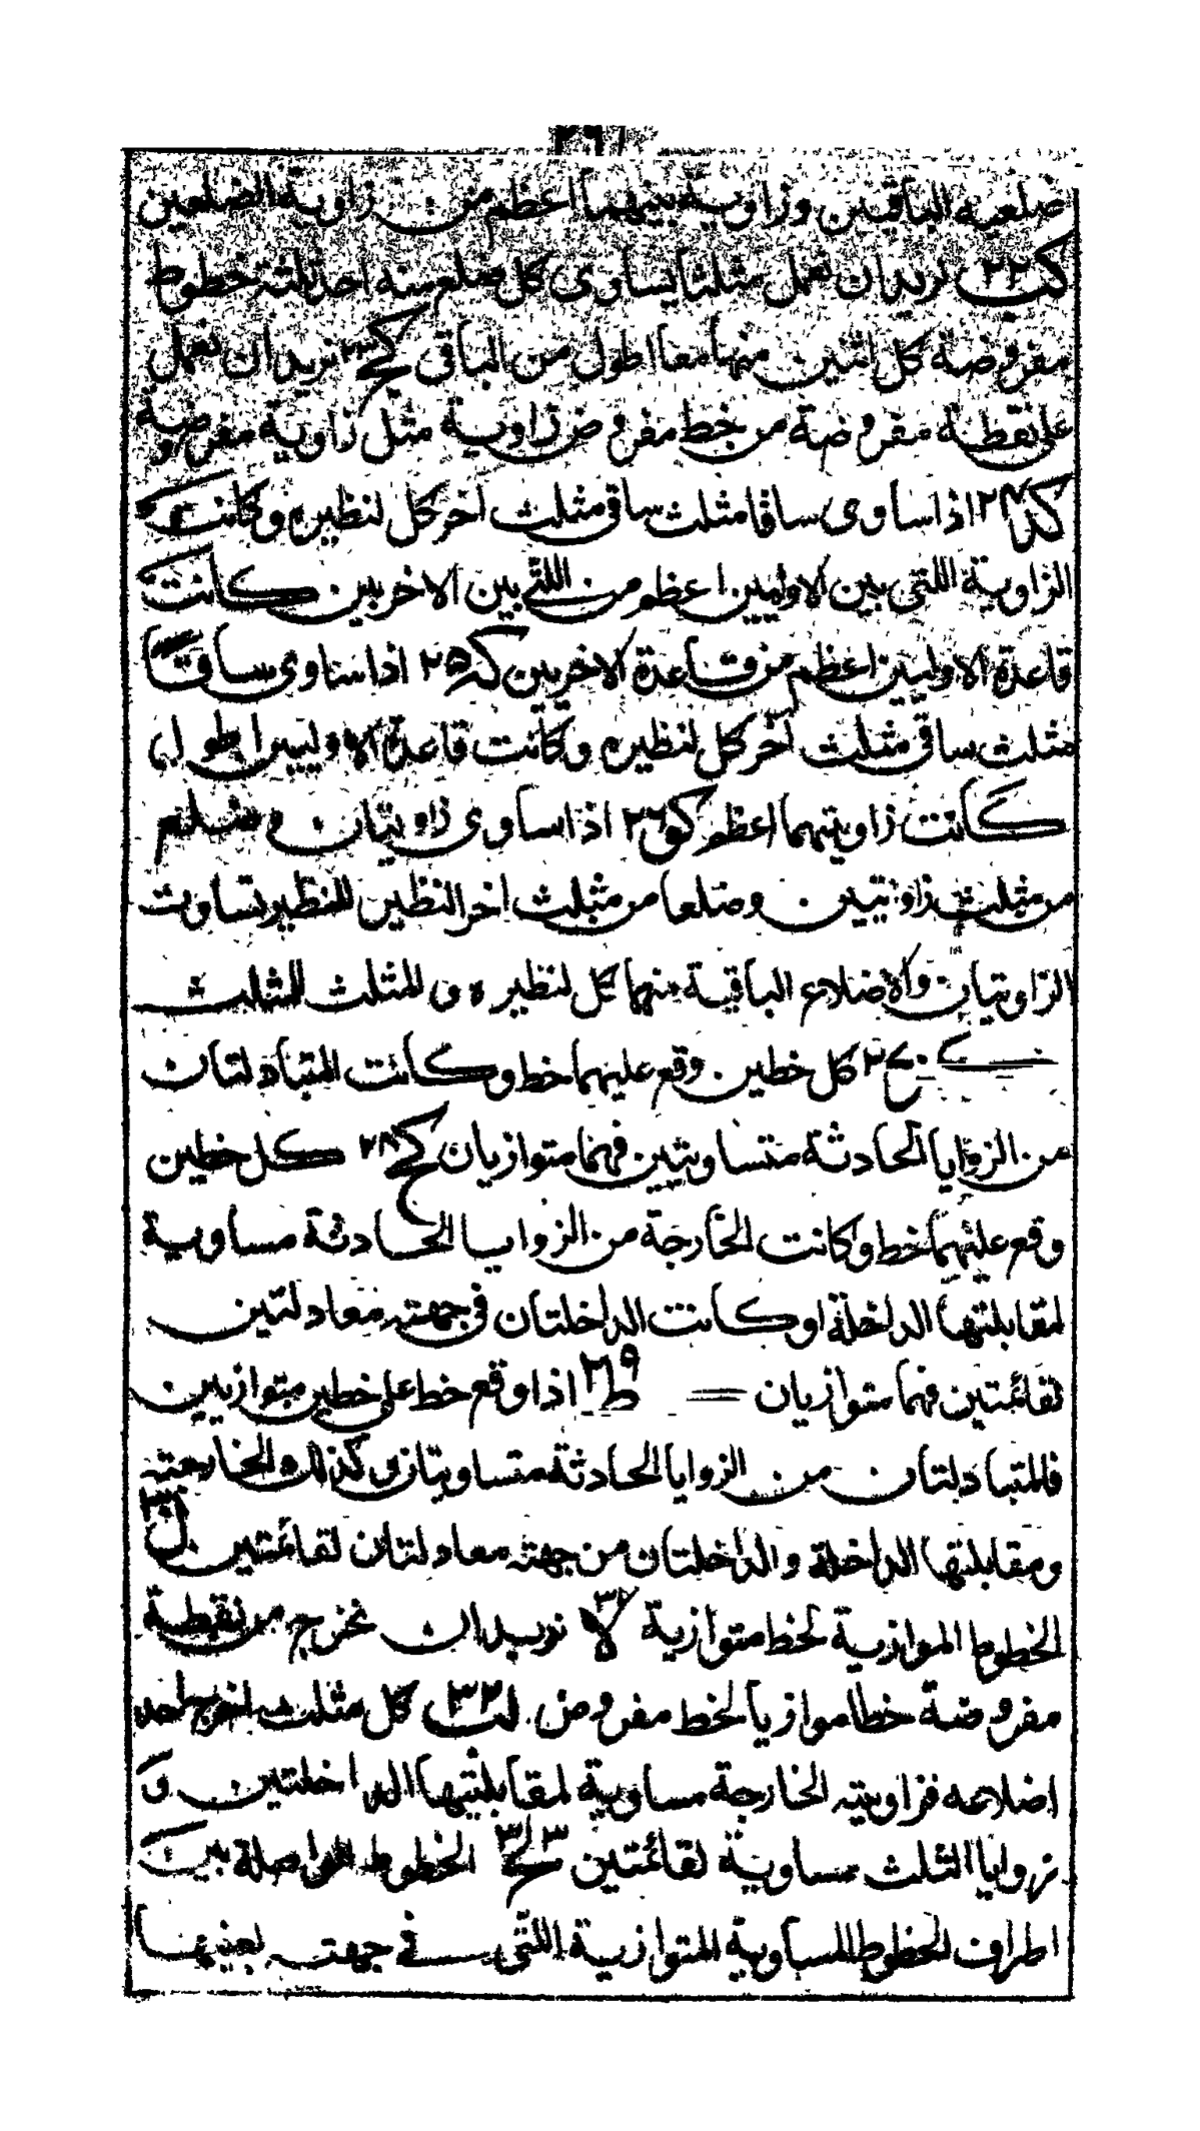 ٢٩١
ضلعيه الباقيين وزاوية بينهما اعظم من زاوية الضلعين
كب ٢٢ نريد ان نعمل مثلثا يساوى كل ضلع منه احد ثلثة خطوط
مفروضة كل اثنين منها معا اطول من الباقى كج ٢٣ نريد ان نعمل
على نقطة مفروضة من خط مفروض زاوية مثل زاوية مفروضة
كد ٢٤ اذا ساوى ساقا مثلث ساقى مثلث اخر كل لنظيره وكانت
الزاوية اللتى بين الاوليين اعظم من اللتى بين الاخريين كانت
قاعدة الاوليين اعظم من قاعدة الاخريين كه ٢٥ اذا ساوى ساقا
مثلث ساقى مثلث آخر كل لنظيره وكانت قاعدة الاوليين اطول
كانت زاويتهما اعظم كو ٢٦ اذا ساوى زاويتان و ضلع
من مثلث زاويتين وضلعا من مثلث اخر النظير للنظير تساوت
الزاويتان والاضلاع الباقية منهما كل لنظيره و المثلث للمثلث
كل خطين وقع عليهما خط وكانت المتبادلتان
من الزوايا الحادثة متساويتين فهما متوازيان كح ٢٨ كل خطين
وقع عليهما خط وكانت الخارجة من الزوايا الحادثة مساوية
لمقابلتها الداخلة او كانت الداخلتان فى جهته معادلتين
لقائمتين فهما متوازيان = ط ٢٩ اذا وقع خط على خطين متوازيين
فالمتبادلتان من الزوايا الحادثة متساويتان و كذلك الخارجته
ومقابلتها الداخلة والداخلتان من جهته معادلتان لقائمتين ل ٣٠
الخطوط الموازية لخط متوازية لا ٣١ نريد ان نخرج من نقطة
مفروضة خطا موازيا لخط مفروض لب ٣٢ كل مثلث اخرج احد
اضلاعه فزاويته الخارجة مساوية لمقابلتيها الداخلتين و
زوايا المثلث مساوية لقائمتين لج ٣٣ الخطوط الواصلة بين
اطراف الخطوط المساوية المتوازية اللتى فى جهته بعينها